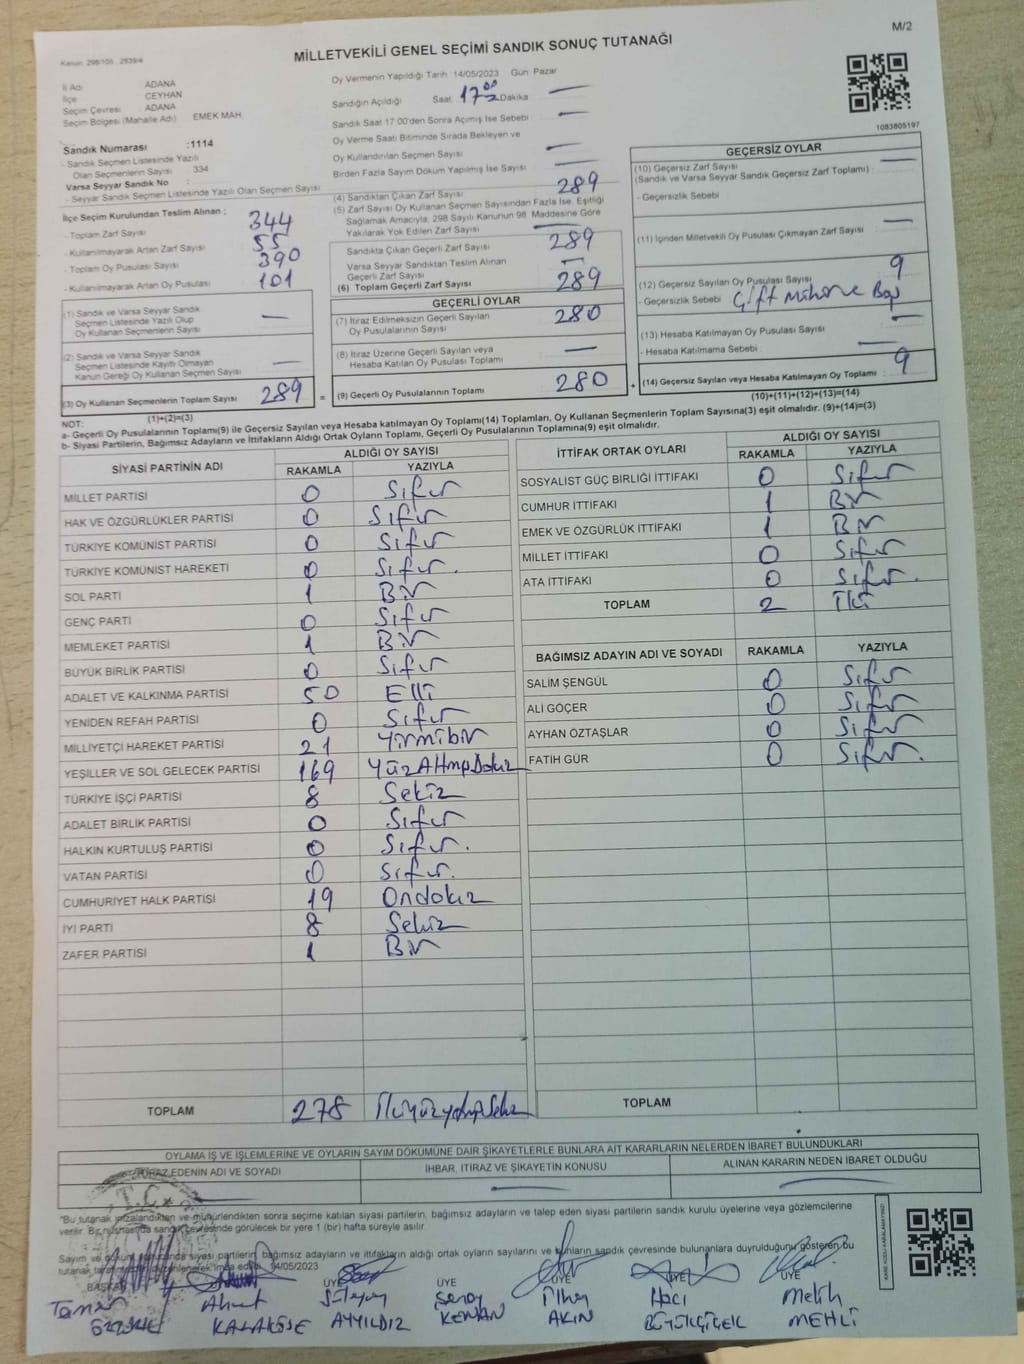 M/2
Kanun: 298/105 , 2839/4
MİLLETVEKİLİ GENEL SEÇİMİ SANDIK SONUÇ TUTANAĞI
İl Adı ADANA
İlçe CEYHAN
Seçim Çevresi ADANA
Seçim Bölgesi (Mahalle Adı) EMEK MAH
Sandık Numarası :1114
- Sandık Seçmen Listesinde Yazılı
Olan Seçmenlerin Sayısı 334
Varsa Seyyar Sandık No :
- Seyyar Sandık Seçmen Listesinde Yazılı Olan Seçmen Sayısı
İlçe Seçim Kurulundan Teslim Alınan :
- Toplam Zarf Sayısı 344
- Kullanılmayarak Artan Zarf Sayısı 55
- Toplam Oy Pusulası Sayısı 390
- Kullanılmayarak Artan Oy Pusulası 101
(1) Sandık ve Varsa Seyyar Sandık
Seçmen Listesinde Yazılı Olup
Oy Kullanan Seçmenlerin Sayısı —
(2) Sandık ve Varsa Seyyar Sandık
Seçmen Listesinde Kayıtlı Olmayan
Kanun Gereği Oy Kullanan Seçmen Sayısı —
(3) Oy Kullanan Seçmenlerin Toplam Sayısı 289 =
(1)+(2)=(3)
Oy Vermenin Yapıldığı Tarih 14/05/2023 Gün: Pazar
Sandığın Açıldığı Saat 17 00 Dakika —
Sandık Saat 17:00'den Sonra Açımış İse Sebebi —
Oy Verme Saati Bitiminde Sırada Bekleyen ve
Oy Kullandırılan Seçmen Sayısı —
Birden Fazla Sayım Döküm Yapılmış İse Sayısı —
(4) Sandıktan Çıkan Zarf Sayısı 289
(5) Zarf Sayısı Oy Kullanan Seçmen Sayısından Fazla İse, Eşitliği
Sağlamak Amacıyla; 298 Sayılı Kanunun 98. Maddesine Göre
Yakılarak Yok Edilen Zarf Sayısı —
Sandıkta Çıkan Geçerli Zarf Sayısı 289
Varsa Seyyar Sandıktan Teslim Alınan
Geçerli Zarf Sayısı —
(6) Toplam Geçerli Zarf Sayısı 289
GEÇERLİ OYLAR
(7) İtiraz Edilmeksizin Geçerli Sayılan
Oy Pusulalarının Sayısı 280
(8) İtiraz Üzerine Geçerli Sayılan veya
Hesaba Katılan Oy Pusulası Toplamı —
(9) Geçerli Oy Pusulalarının Toplamı 280 +
1083805197
GEÇERSİZ OYLAR
(10) Geçersiz Zarf Sayısı
(Sandık ve Varsa Seyyar Sandık Geçersiz Zarf Toplamı) : —
- Geçersizlik Sebebi
(11) İçinden Milletvekili Oy Pusulası Çıkmayan Zarf Sayısı —
(12) Geçersiz Sayılan Oy Pusulası Sayısı 9
- Geçersizlik Sebebi Çift Mühür ve Boş
(13) Hesaba Katılmayan Oy Pusulası Sayısı —
- Hesaba Katılmama Sebebi : —
(14) Geçersiz Sayılan veya Hesaba Katılmayan Oy Toplamı : 9
(10)+(11)+(12)+(13)=(14)
NOT:
a- Geçerli Oy Pusulalarının Toplamı(9) ile Geçersiz Sayılan veya Hesaba katılmayan Oy Toplamı(14) Toplamları, Oy Kullanan Seçmenlerin Toplam Sayısına(3) eşit olmalıdır. (9)+(14)=(3)
b- Siyasi Partilerin, Bağımsız Adayların ve İttifakların Aldığı Ortak Oyların Toplamı, Geçerli Oy Pusulalarının Toplamına(9) eşit olmalıdır.
SİYASİ PARTİNİN ADI ALDIĞI OY SAYISI
RAKAMLA YAZIYLA
MİLLET PARTİSİ 0 Sıfır
HAK VE ÖZGÜRLÜKLER PARTİSİ 0 Sıfır
TÜRKİYE KOMÜNİST PARTİSİ 0 Sıfır
TÜRKİYE KOMÜNİST HAREKETİ 0 Sıfır.
SOL PARTİ 1 Bir
GENÇ PARTİ 0 Sıfır
MEMLEKET PARTİSİ 1 Bir
BÜYÜK BİRLİK PARTİSİ 0 Sıfır
ADALET VE KALKINMA PARTİSİ 50 Elli
YENİDEN REFAH PARTİSİ 0 Sıfır
MİLLİYETÇİ HAREKET PARTİSİ 21 Yirmibir
YEŞİLLER VE SOL GELECEK PARTİSİ 169 YüzAltmışDokuz
TÜRKİYE İŞÇİ PARTİSİ 8 Sekiz
ADALET BİRLİK PARTİSİ 0 Sıfır
HALKIN KURTULUŞ PARTİSİ 0 Sıfır.
VATAN PARTİSİ 0 Sıfır.
CUMHURİYET HALK PARTİSİ 19 Ondokuz
İYİ PARTİ 8 Sekiz
ZAFER PARTİSİ 1 Bir
TOPLAM 278 İkiyüzyetmişSekiz
İTTİFAK ORTAK OYLARI ALDIĞI OY SAYISI
RAKAMLA YAZIYLA
SOSYALİST GÜÇ BİRLİĞİ İTTİFAKI 0 Sıfır
CUMHUR İTTİFAKI 1 Bir
EMEK VE ÖZGÜRLÜK İTTİFAKI 1 Bir
MİLLET İTTİFAKI 0 Sıfır
ATA İTTİFAKI 0 Sıfır.
TOPLAM 2 İki
BAĞIMSIZ ADAYIN ADI VE SOYADI RAKAMLA YAZIYLA
SALİM ŞENGÜL 0 Sıfır
ALİ GÖÇER 0 Sıfır
AYHAN ÖZTAŞLAR 0 Sıfır
FATİH GÜR 0 Sıfır.
TOPLAM
OYLAMA İŞ VE İŞLEMLERİNE VE OYLARIN SAYIM DÖKÜMÜNE DAİR ŞİKAYETLERLE BUNLARA AİT KARARLARIN NELERDEN İBARET BULUNDUKLARI
İTİRAZ EDENİN ADI VE SOYADI İHBAR, İTİRAZ VE ŞİKAYETİN KONUSU ALINAN KARARIN NEDEN İBARET OLDUĞU
T.C.
"Bu tutanak imzalandıktan ve mühürlendikten sonra seçime katılan siyasi partilerin, bağımsız adayların ve talep eden siyasi partilerin sandık kurulu üyelerine veya gözlemcilerine
verilir. Bir nüshası da sandık çevresinde görülecek bir yere 1 (bir) hafta süreyle asılır.
Sayım ve döküm sonucunda siyasi partilerin, bağımsız adayların ve ittifakların aldığı ortak oyların sayılarını ve bunların sandık çevresinde bulunanlara duyrulduğunu gösteren bu
tutanak tarafımızdan düzenlenerek imza edildi. 14/05/2023
BAŞKAN ÜYE ÜYE ÜYE ÜYE ÜYE
Ahmet Süleyman Seray İlhan Hacı Melih
KALAKÖSE AYYILDIZ KENAN AKIN BÜYÜKÇİÇEK MEHLİ